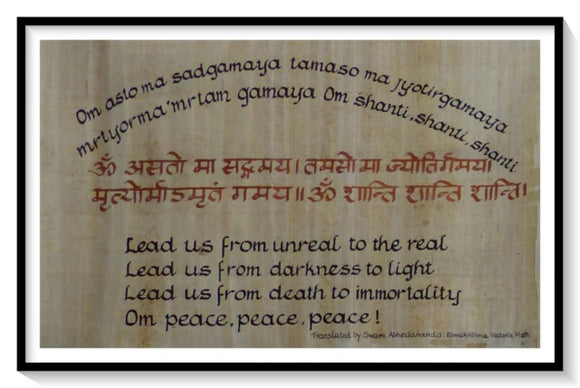 Om asto ma sadgamaya tamaso ma jyotirgamaya
mrtyorma'mrtam gamaya Om shanti, shanti, shanti
ॐ असतो मा सद्गमय। तमसो मा ज्योतिर्गमय।
मृत्योर्माऽमृतं गमय॥ ॐ शान्ति शान्ति शान्ति।
Lead us from unreal to the real
Lead us from darkness to light
Lead us from death to immortality
Om peace, peace, peace!
Translated by Swami Abhedananda. Ramakrishna Vedanta Math